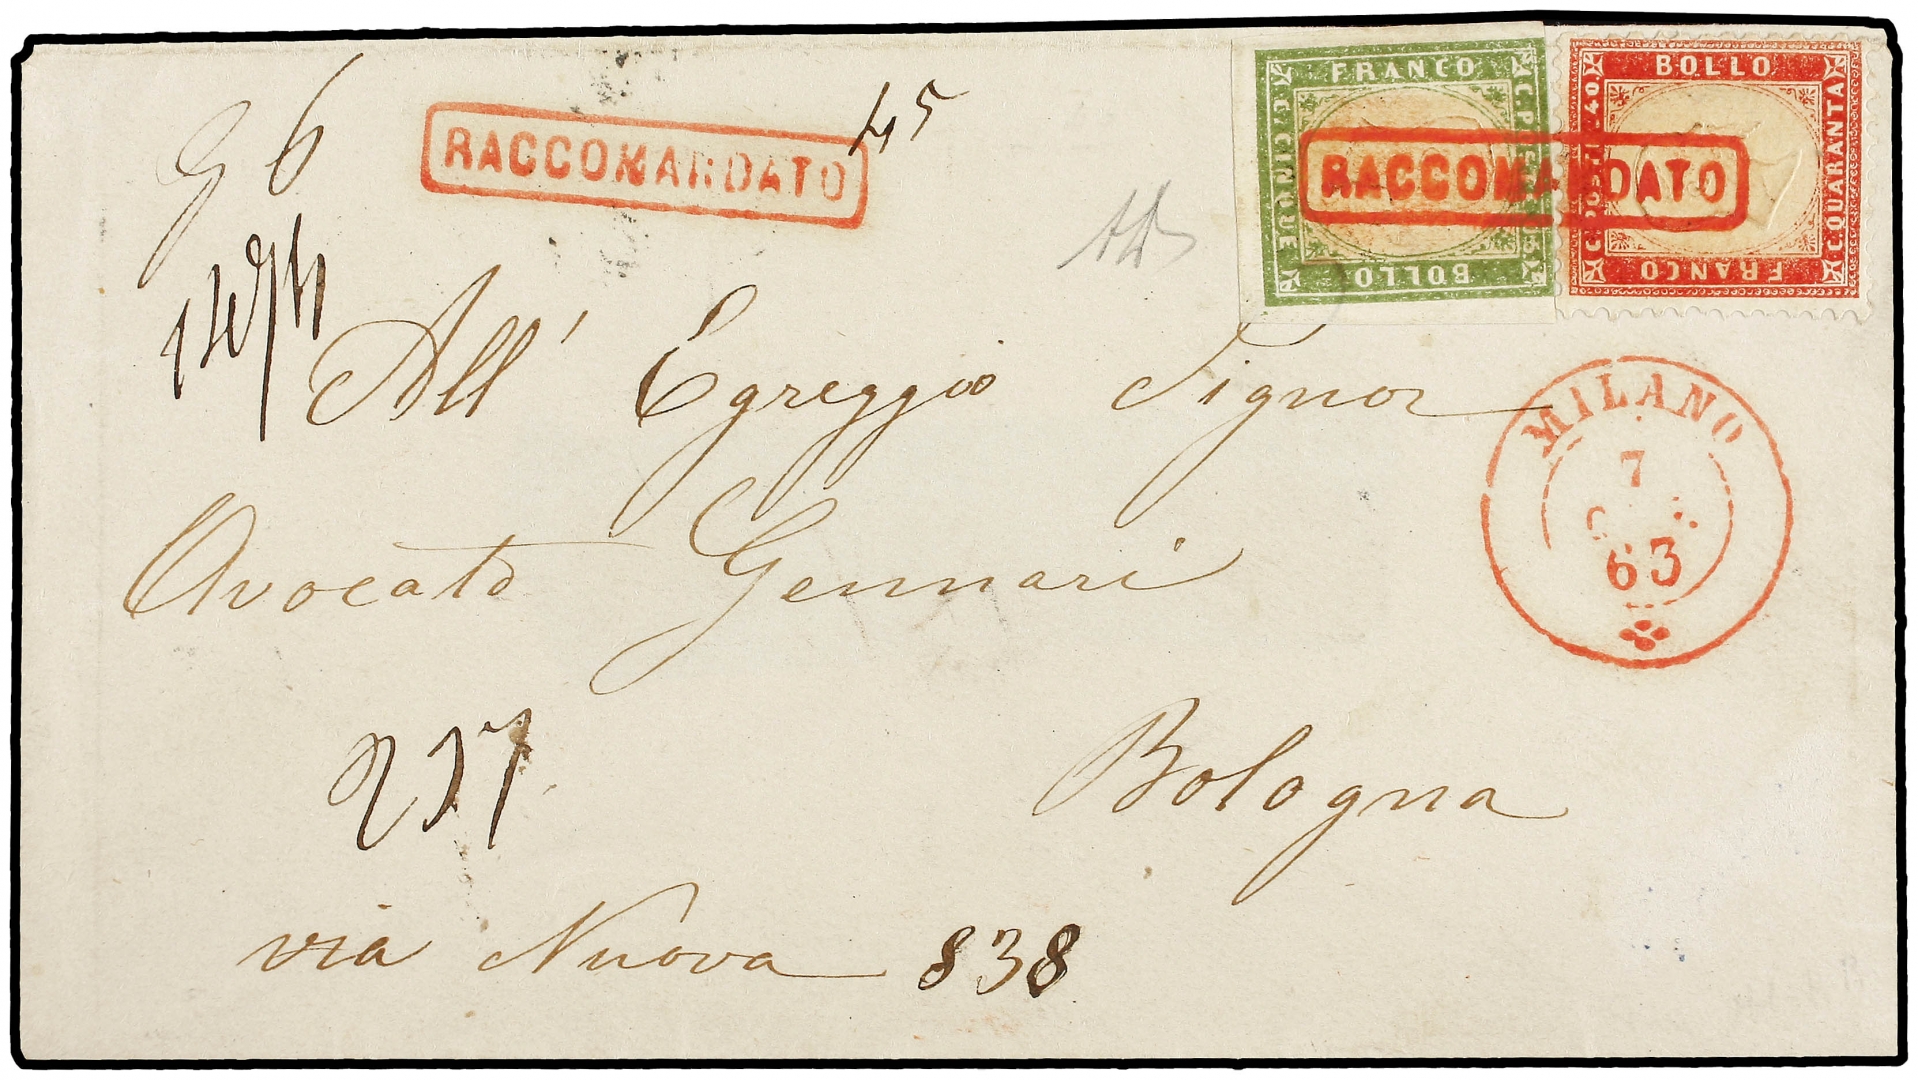 G 6
RACCOMANDATO
45
FRANCO
C. CINQUE
BOLLO
BOLLO
C. POSTE 40
C. QUARANTA
FRANCO
RACCOMANDATO
All' Egreggio Signor
MILANO
7
63
Avocato Gennari
237
Bologna
via Nuova 838